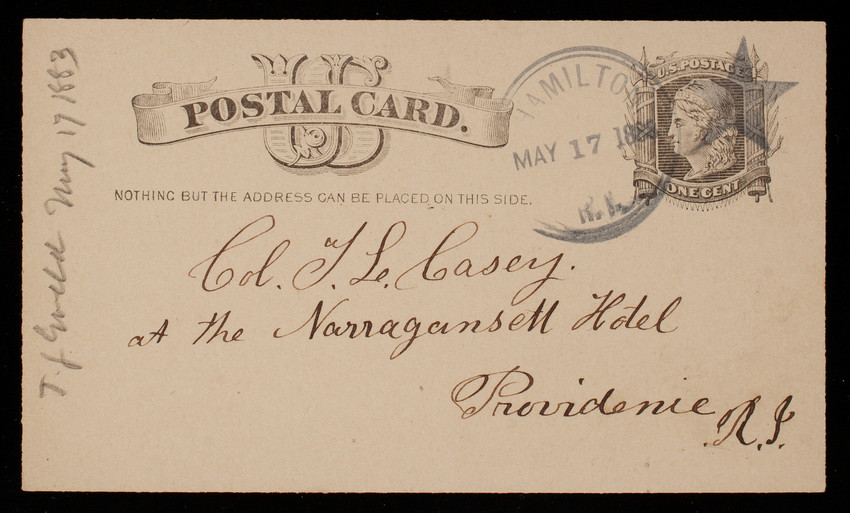 US
POSTAL CARD.
NOTHING BUT THE ADDRESS CAN BE PLACED ON THIS SIDE.
U.S. POSTAGE
ONE CENT
HAMILTON
MAY 17
R.I.
Col. T. L. Casey.
at the Narragansett Hotel
Providence
R.I.
T. J. May 17 1883